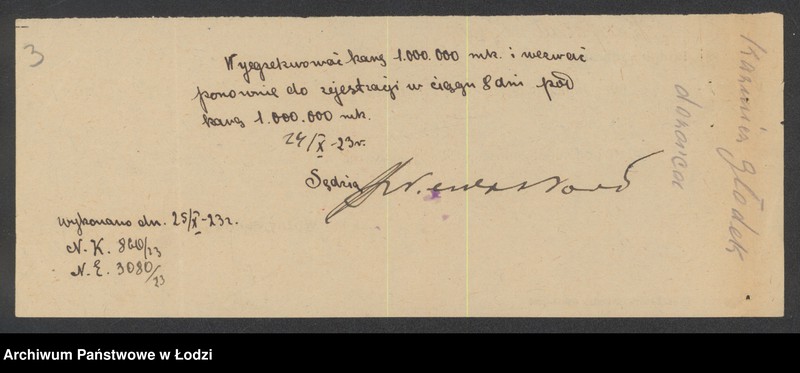 3
Wyegzekwować karę 1.000.000 mk. i wezwać
ponownie do rejestracji w ciągu 8 dni pod
karą 1.000.000 mk.
24/X-23r.
Sędzia
wykonano dn. 25/X-23r.
N. K. 860/23
N. E. 3080/23
Kazimierz Głodek
dozorca
Archiwum Państwowe w Łodzi